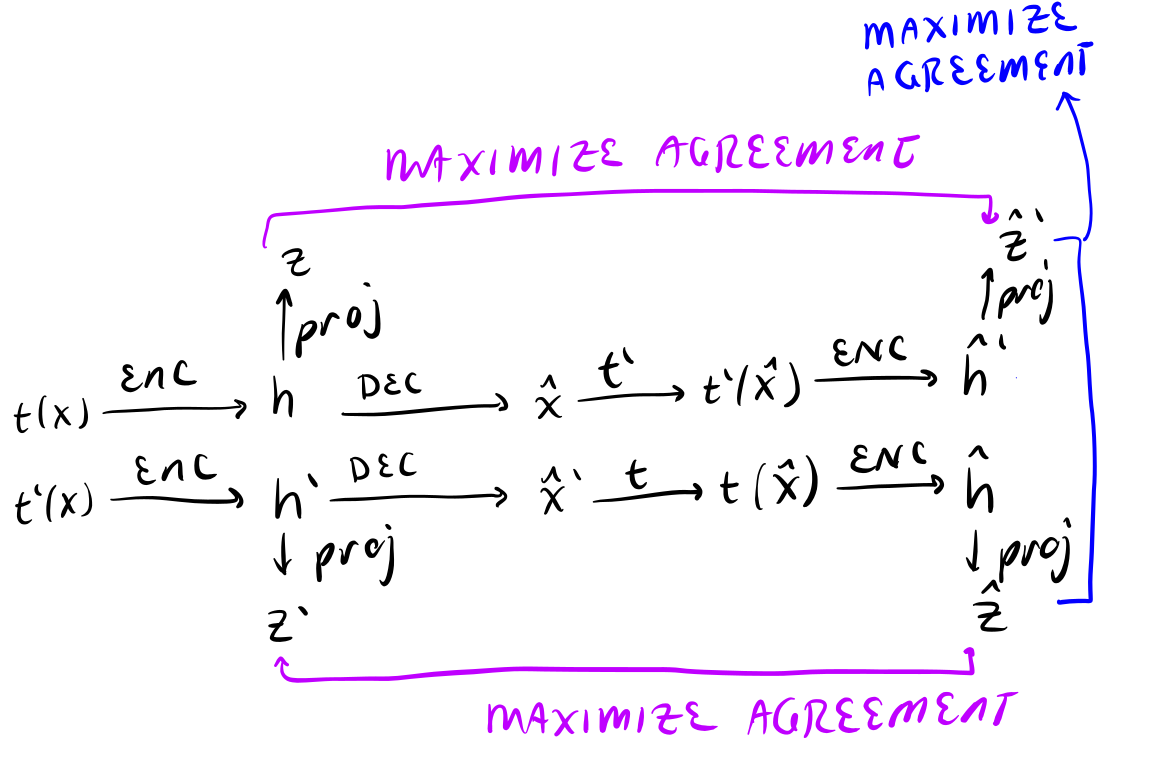 MAXIMIZE
AGREEMENT
MAXIMIZE AGREEMENT
z ẑ'
proj proj
t(x) ENC h DEC x̂ t' t'(x̂) ENC ĥ'
t'(x) ENC h' DEC x̂' t t(x̂) ENC ĥ
proj proj
z' ẑ
MAXIMIZE AGREEMENT